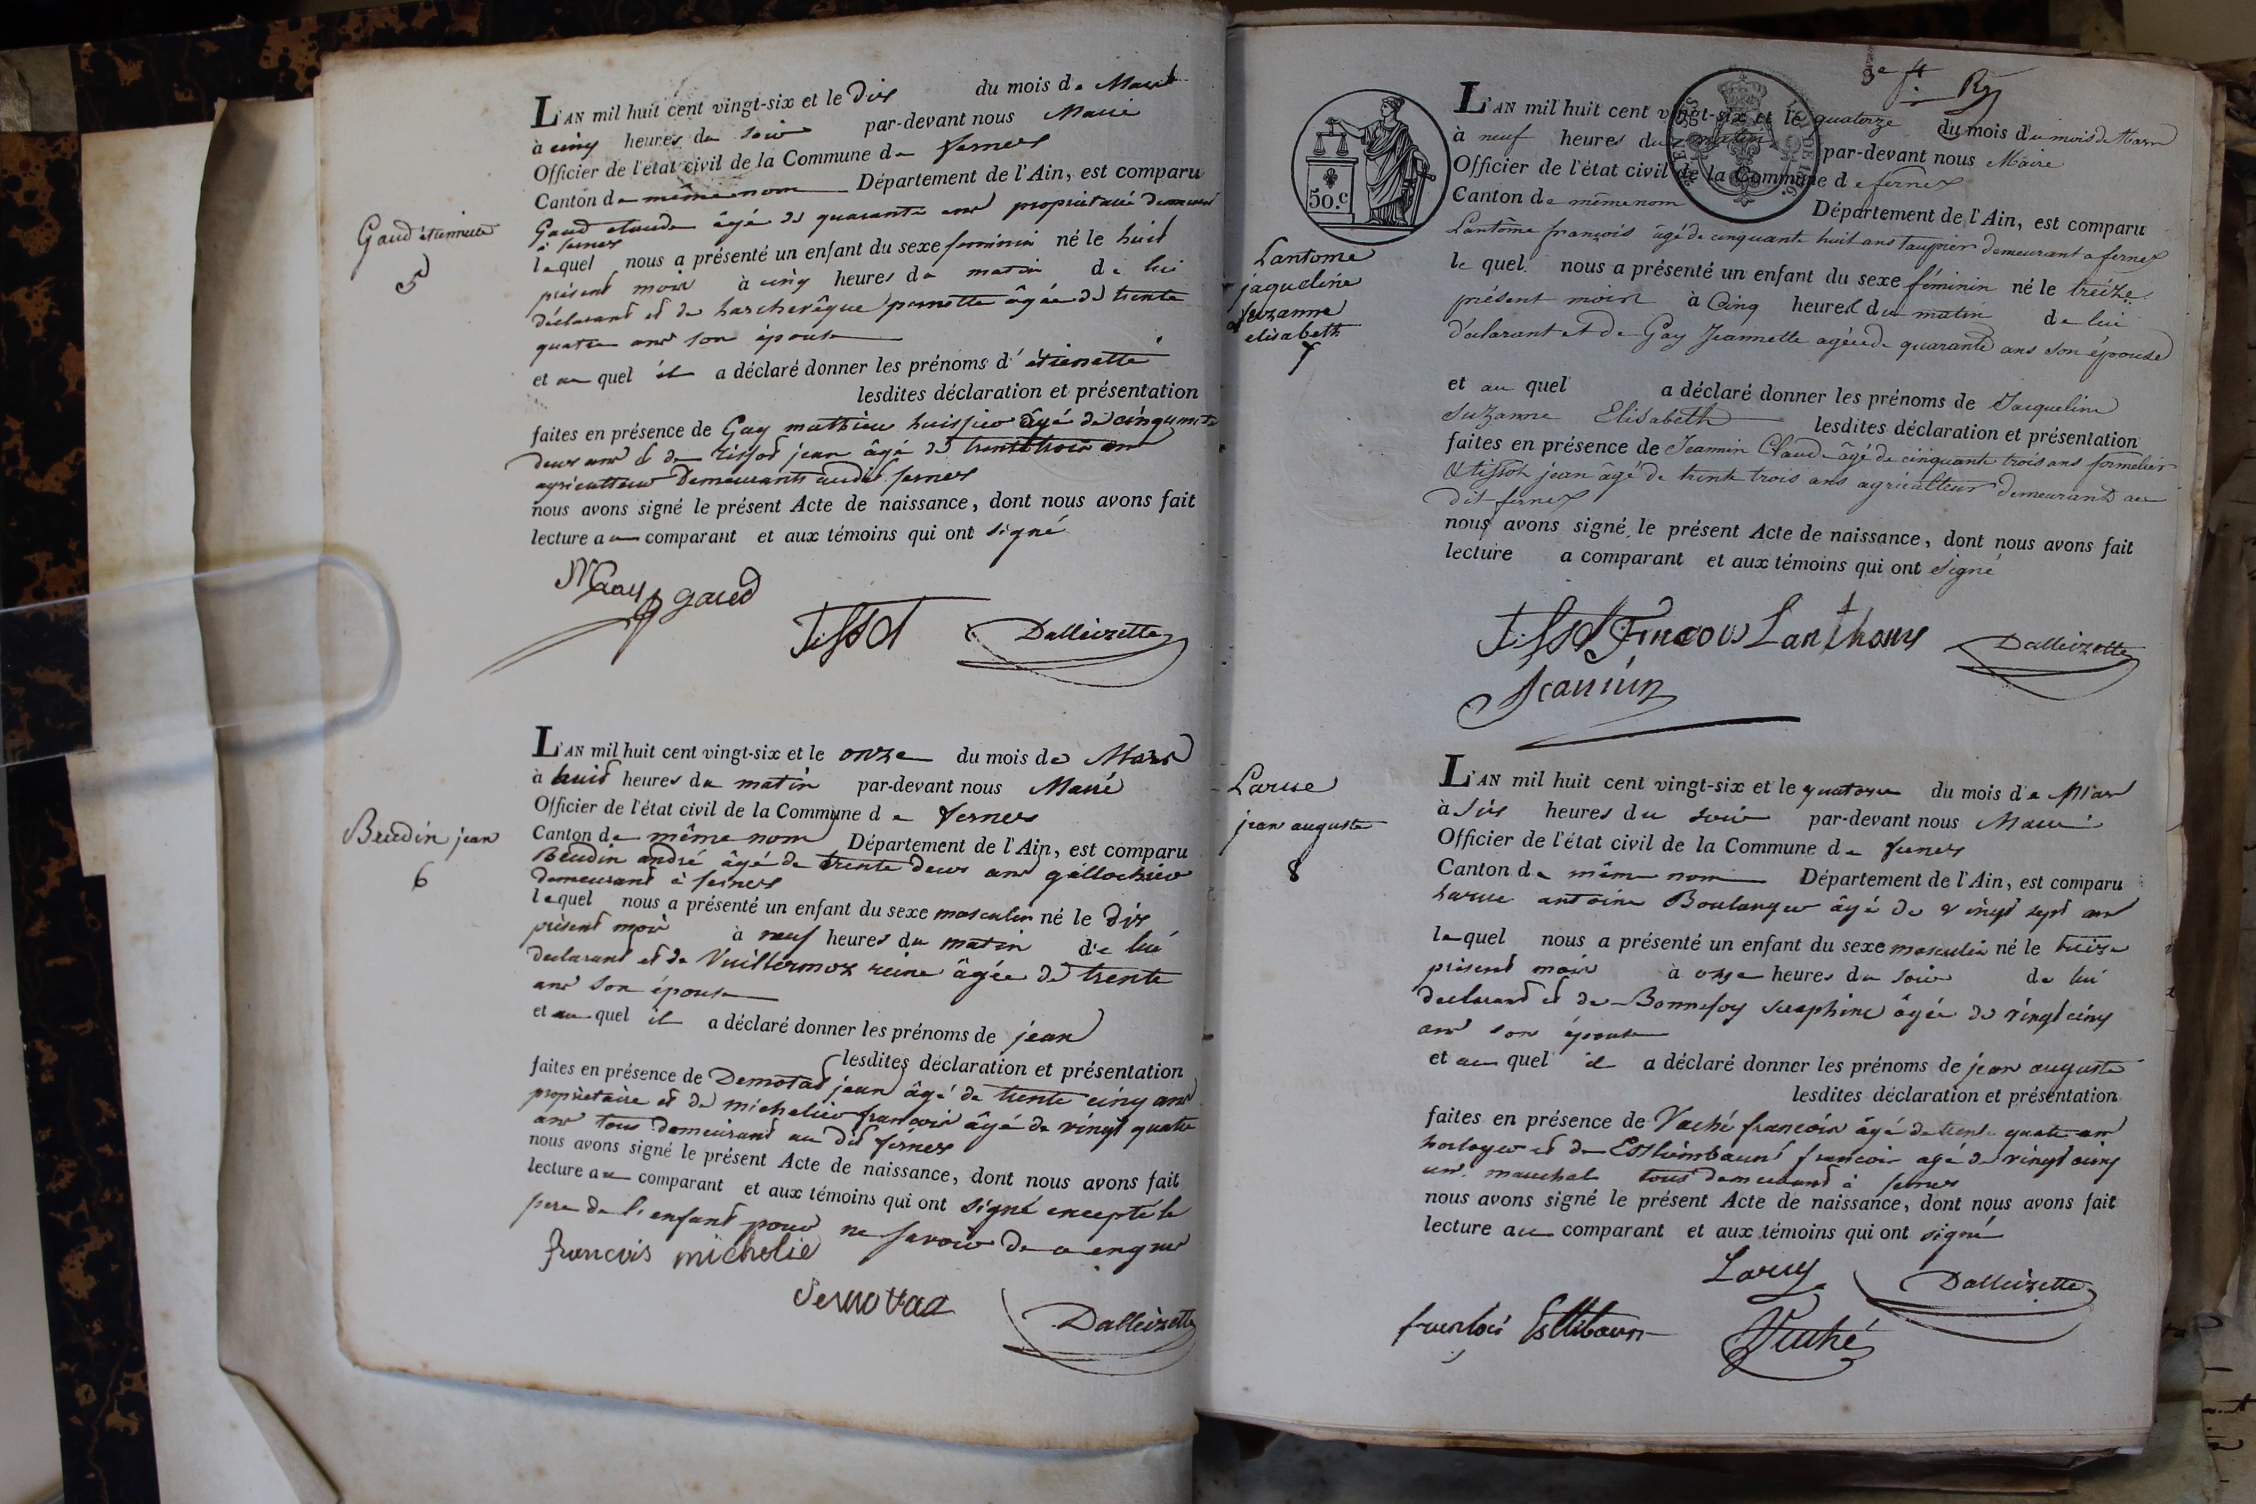 Gaud étiennette
5
L'AN mil huit cent vingt-six et le dix du mois de Mars
à cinq heures du soir par-devant nous Maire
Officier de l'état civil de la Commune de fernex
Canton de même nom Département de l'Ain, est comparu
Gaud claude âgé de quarante ans propriétaire demeurant
à fernex
lequel nous a présenté un enfant du sexe feminin né le huit
présent mois à cinq heures du matin de lui
déclarant et de Larchevêque pernette âgée de trente
quatre ans son épouse
et au quel il a déclaré donner les prénoms d'étienette
lesdites déclaration et présentation
faites en présence de Gay mathieu huissier âgé de cinquante
deux ans et de tissot jean âgé de trente trois ans
agriculteur demeurants audit fernex
nous avons signé le présent Acte de naissance, dont nous avons fait
lecture au comparant et aux témoins qui ont signé
MGay gaud
tissot Dalleizette
Beudin jean
6
L'AN mil huit cent vingt-six et le onze du mois de Mars
à huit heures du matin par-devant nous Maire
Officier de l'état civil de la Commune de fernex
Canton de même nom Département de l'Ain, est comparu
Beudin andré âgé de trente deux ans
demeurant à fernex
lequel nous a présenté un enfant du sexe masculin né le dix
présent mois à neuf heures du matin de lui
declarant et de Vuillermoz reine âgée de trente
ans son épouse
et au quel il a déclaré donner les prénoms de jean
lesdites déclaration et présentation
faites en présence de Demotas jean âgé de trente cinq ans
propriétaire et de michelier françois âgé de vingt quatre
ans tous demeurant au dit fernex
nous avons signé le présent Acte de naissance, dont nous avons fait
lecture au comparant et aux témoins qui ont signé excepté le
pere de l'enfant pour ne savoir de ce enquis
francois michelie
Demotaz
Dalleizette
50.c
Lantome
jaqueline
suzanne
elisabeth
7
L'AN mil huit cent vingt-six et le quatorze du mois du mois de Mars
à neuf heures du matin par-devant nous Maire
Officier de l'état civil de la Commune de fernex
Canton de même nom Département de l'Ain, est comparu
Lantôme françois âgé de cinquante huit ans taupier demeurant a fernex
le quel nous a présenté un enfant du sexe féminin né le treize
présent mois à Cinq heures du matin de lui
déclarant et de Gay Jeannette agée de quarante ans son épouse
et au quel a déclaré donner les prénoms de Jacqueline
Suzanne Elisabeth lesdites déclaration et présentation
faites en présence de Jeannin Claude âgé de cinquante trois ans
& tissot jean âgé de trente trois ans agriculteur demeurant au
dit fernex
nous avons signé le présent Acte de naissance, dont nous avons fait
lecture a comparant et aux témoins qui ont signé
tissot Dalleizette
Jeannin
Larue
jean auguste
8
L'AN mil huit cent vingt-six et le quatorze du mois de Mars
à six heures du soir par-devant nous Maire
Officier de l'état civil de la Commune de fernex
Canton de même nom Département de l'Ain, est comparu
Larue antoine Boulanger âgé de vingt sept ans
lequel nous a présenté un enfant du sexe masculin né le treize
présent mois à onze heures du soir de lui
declarant et de Bonnefoy seraphine âgée de vingt cinq
ans son épouse
et au quel il a déclaré donner les prénoms de jean auguste
lesdites déclaration et présentation
faites en présence de Vaché francois âgé de trente quatre ans
horloger et de francois agé de vingt cinq
ans marechal tous demeurant à fernex
nous avons signé le présent Acte de naissance, dont nous avons fait
lecture au comparant et aux témoins qui ont signé
Larue Dalleizette
Vaché